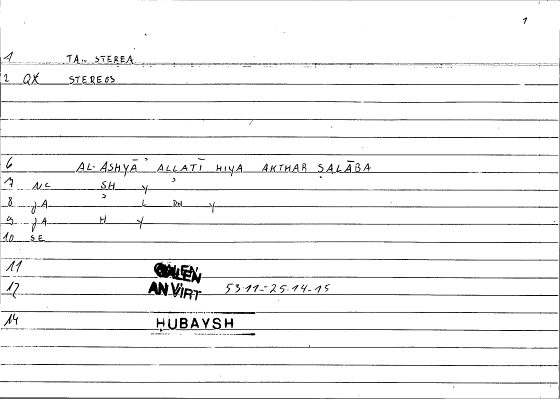 1
1 TA.. STEREA
2 QX STEREOS
6 AL-ASHYĀʾ ALLATĪ HIYA AKTHAR ṢALĀBA
7 NC SH Y ʾ
8 JA ʾ L DH Y
9 JA H Y
10 SE
11 GALEN
12 AN VIRT 53.11=25.14-15
14 ḤUBAYSH